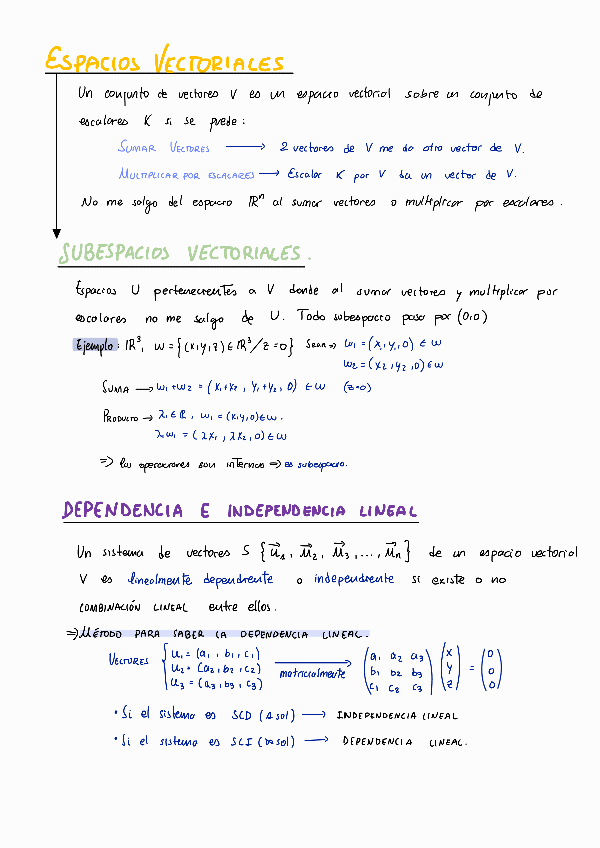 ESPACIOS VECTORIALES
Un conjunto de vectores V es un espacio vectorial sobre un conjunto de
escalares K si se puede:
SUMAR VECTORES → 2 vectores de V me da otro vector de V.
MULTIPLICAR POR ESCALARES → Escalar K por V da un vector de V.
No me salgo del espacio ℝⁿ al sumar vectores o multiplicar por escalares.
SUBESPACIOS VECTORIALES.
Espacios U pertenecientes a V donde al sumar vectores y multiplicar por
escalares no me salgo de U. Todo subespacio pasa por (0,0)
Ejemplo: ℝ³, W = {(x,y,z) ∈ ℝ³/z=0} Sean → w₁ = (x,y,0) ∈ W
w₂ = (x₂,y₂,0) ∈ W
SUMA → w₁+w₂ = (x₁+x₂, y₁+y₂, 0) ∈ W (z=0)
PRODUCTO → λ₁ ∈ ℝ, w₁ = (x,y,0) ∈ W.
λ₁w₁ = (λx₁, λx₂, 0) ∈ W
⇒ las operaciones son internas ⇒ es subespacio.
DEPENDENCIA E INDEPENDENCIA LINEAL
Un sistema de vectores S {u⃗₁, u⃗₂, u⃗₃, ..., u⃗ₙ} de un espacio vectorial
V es linealmente dependiente o independiente si existe o no
COMBINACIÓN LINEAL entre ellos.
⇒ MÉTODO PARA SABER LA DEPENDENCIA LINEAL.
VECTORES { u₁ = (a₁, b₁, c₁) (a₁ a₂ a₃) (x) (0)
u₂ = (a₂, b₂, c₂) → matricialmente (b₁ b₂ b₃) (y) = (0)
u₃ = (a₃, b₃, c₃) (c₁ c₂ c₃) (z) (0)
• Si el sistema es SCD (1 sol) → INDEPENDENCIA LINEAL
• Si el sistema es SCI (∞ sol) → DEPENDENCIA LINEAL.